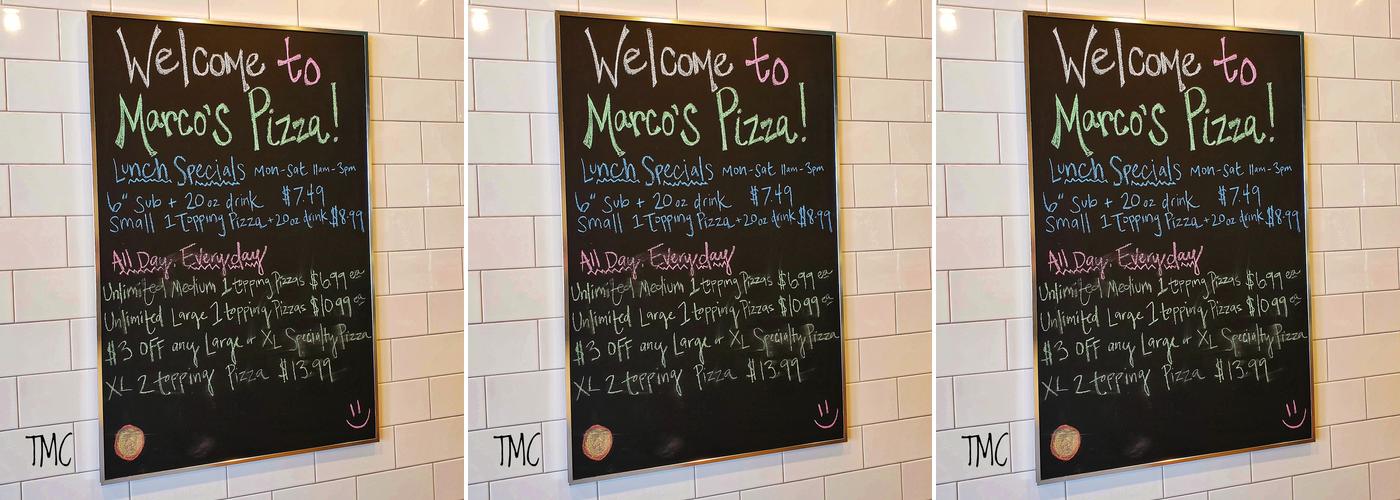 Welcome to
Marco's Pizza!
Lunch Specials Mon-Sat 11am-3pm
6" Sub + 20 oz drink $7.49
Small 1 Topping Pizza + 20 oz drink $8.99
All Day, Everyday
Unlimited Medium 1 topping Pizzas $6.99 ea
Unlimited Large 1 topping Pizzas $10.99 ea
$3 OFF any Large or XL Specialty Pizza
XL 2 topping Pizza $13.99
TMC
Welcome to
Marco's Pizza!
Lunch Specials Mon-Sat 11am-3pm
6" Sub + 20 oz drink $7.49
Small 1 Topping Pizza + 20 oz drink $8.99
All Day, Everyday
Unlimited Medium 1 topping Pizzas $6.99 ea
Unlimited Large 1 topping Pizzas $10.99 ea
$3 OFF any Large or XL Specialty Pizza
XL 2 topping Pizza $13.99
TMC
Welcome to
Marco's Pizza!
Lunch Specials Mon-Sat 11am-3pm
6" Sub + 20 oz drink $7.49
Small 1 Topping Pizza + 20 oz drink $8.99
All Day, Everyday
Unlimited Medium 1 topping Pizzas $6.99 ea
Unlimited Large 1 topping Pizzas $10.99 ea
$3 OFF any Large or XL Specialty Pizza
XL 2 topping Pizza $13.99
TMC